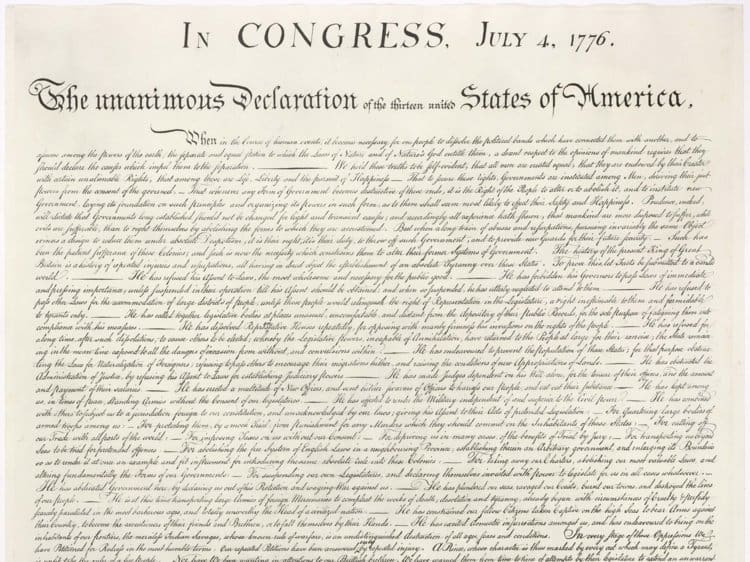 IN CONGRESS, JULY 4, 1776.
The unanimous Declaration of the thirteen united States of America,
When in the Course of human events, it becomes necessary for one people to dissolve the political bands which have connected them with another, and to
assume among the powers of the earth, the separate and equal station to which the Laws of Nature and of Nature's God entitle them, a decent respect to the opinions of mankind requires that they
should declare the causes which impel them to the separation. We hold these truths to be self-evident, that all men are created equal, that they are endowed by their Creator
with certain unalienable Rights, that among these are Life, Liberty and the pursuit of Happiness.— That to secure these rights, Governments are instituted among Men, deriving their just
powers from the consent of the governed, — That whenever any Form of Government becomes destructive of these ends, it is the Right of the People to alter or to abolish it, and to institute new
Government, laying its foundation on such principles and organizing its powers in such form, as to them shall seem most likely to effect their Safety and Happiness. Prudence, indeed,
will dictate that Governments long established should not be changed for light and transient causes; and accordingly all experience hath shewn, that mankind are more disposed to suffer, while
evils are sufferable, than to right themselves by abolishing the forms to which they are accustomed. But when a long train of abuses and usurpations, pursuing invariably the same Object
evinces a design to reduce them under absolute Despotism, it is their right, it is their duty, to throw off such Government, and to provide new Guards for their future security. — Such has
been the patient sufferance of these Colonies; and such is now the necessity which constrains them to alter their former Systems of Government. The history of the present King of Great
Britain is a history of repeated injuries and usurpations, all having in direct object the establishment of an absolute Tyranny over these States. To prove this, let Facts be submitted to a candid
world. He has refused his Assent to Laws, the most wholesome and necessary for the public good. He has forbidden his Governors to pass Laws of immediate
and pressing importance, unless suspended in their operation till his Assent should be obtained; and when so suspended, he has utterly neglected to attend to them. He has refused to
pass other Laws for the accommodation of large districts of people, unless those people would relinquish the right of Representation in the Legislature, a right inestimable to them and formidable
to tyrants only. He has called together legislative bodies at places unusual, uncomfortable, and distant from the depository of their Public Records, for the sole purpose of fatiguing them into
compliance with his measures. He has dissolved Representative Houses repeatedly, for opposing with manly firmness his invasions on the rights of the people. He has refused for
a long time, after such dissolutions, to cause others to be elected; whereby the Legislative powers, incapable of Annihilation, have returned to the People at large for their exercise; the State remain
ing in the mean time exposed to all the dangers of invasion from without, and convulsions within. He has endeavoured to prevent the population of these States; for that purpose obstruc
ting the Laws for Naturalization of Foreigners; refusing to pass others to encourage their migrations hither, and raising the conditions of new Appropriations of Lands. He has obstructed the
Administration of Justice, by refusing his Assent to Laws for establishing Judiciary powers. He has made Judges dependent on his Will alone, for the tenure of their offices, and the amount
and payment of their salaries. He has erected a multitude of New Offices, and sent hither swarms of Officers to harrass our people, and eat out their substance. He has kept among
us, in times of peace, Standing Armies without the Consent of our legislatures. He has affected to render the Military independent of and superior to the Civil power. He has combined
with others to subject us to a jurisdiction foreign to our constitution, and unacknowledged by our laws; giving his Assent to their Acts of pretended Legislation: — For Quartering large bodies of
armed troops among us: — For protecting them, by a mock Trial, from punishment for any Murders which they should commit on the Inhabitants of these States: — For cutting off
our Trade with all parts of the world: — For imposing Taxes on us without our Consent: — For depriving us in many cases, of the benefits of Trial by Jury: — For transporting us beyond
Seas to be tried for pretended offences — For abolishing the free System of English Laws in a neighbouring Province, establishing therein an Arbitrary government, and enlarging its Boundaries
so as to render it at once an example and fit instrument for introducing the same absolute rule into these Colonies: — For taking away our Charters, abolishing our most valuable Laws, and
altering fundamentally the Forms of our Governments: — For suspending our own Legislatures, and declaring themselves invested with power to legislate for us in all cases whatsoever. —
He has abdicated Government here, by declaring us out of his Protection and waging War against us. He has plundered our seas, ravaged our Coasts, burnt our towns, and destroyed the lives
of our people. He is at this time transporting large Armies of foreign Mercenaries to compleat the works of death, desolation and tyranny, already begun with circumstances of Cruelty & perfidy
scarcely paralleled in the most barbarous ages, and totally unworthy the Head of a civilized nation. He has constrained our fellow Citizens taken Captive on the high Seas to bear Arms against
their Country, to become the executioners of their friends and Brethren, or to fall themselves by their Hands. He has excited domestic insurrections amongst us, and has endeavoured to bring on the
inhabitants of our frontiers, the merciless Indian Savages, whose known rule of warfare, is an undistinguished destruction of all ages, sexes and conditions. In every stage of these Oppressions We
have Petitioned for Redress in the most humble terms: Our repeated Petitions have been answered only by repeated injury. A Prince, whose character is thus marked by every act which may define a Tyrant,